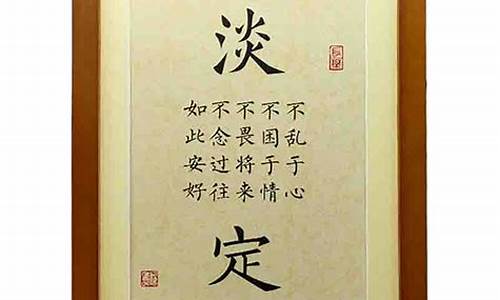 淡
不乱于心
不困于情
不畏将来
不念过往
如此安好
定